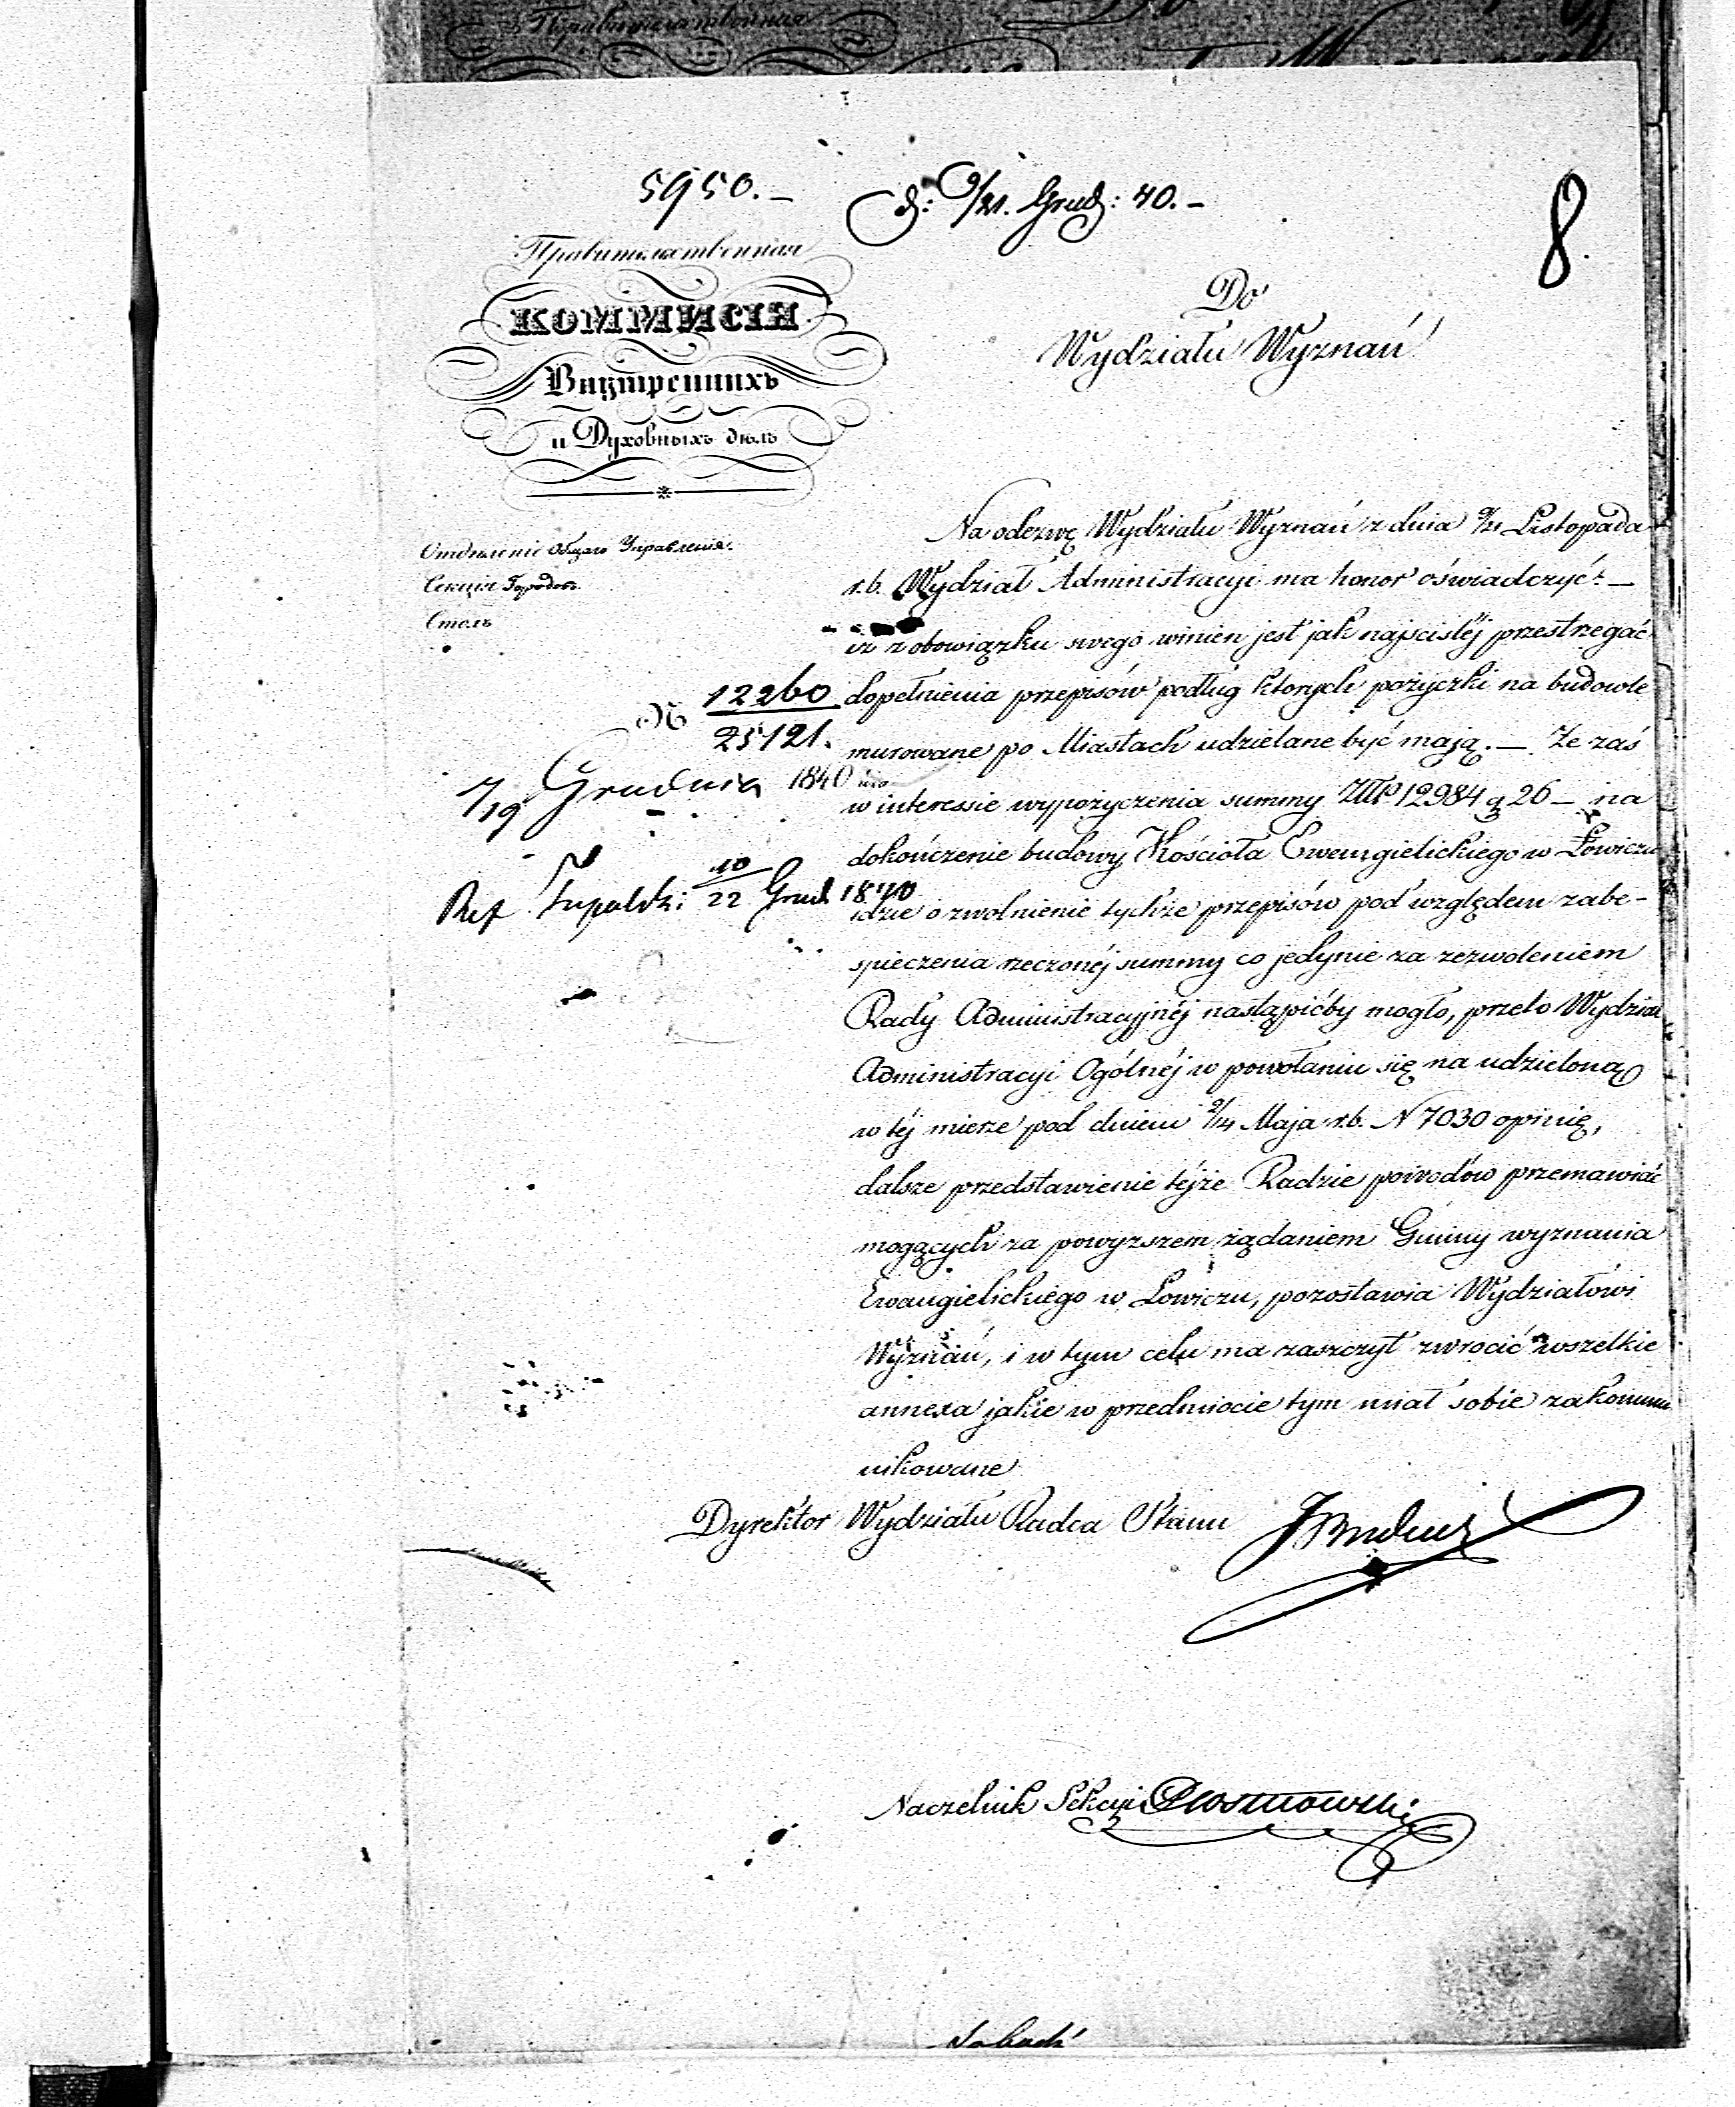 5950.–
d: 9/21. Grud: 40.–
8.
Правительственная
КОММИСІЯ
Внутреннихъ
и Духовныхъ дѣлъ
Отдѣленіе Общаго Управленія.
Секція Городовъ.
Столъ
N 12260
25121.
7/19 Grudnia 1840
Ref 10/22 Grud 1840
Do
Wydziału Wyznań
Na odezwę Wydziału Wyznań z dnia 9/21 Listopada
r.b. Wydział Administracyi ma honor oświadczyć: –
iż z obowiązku swego winien jest jak najściślej przestrzegać
dopełnienia przepisów podług ktorych pożyczki na budowle
murowane po Miastach udzielane być mają. – Że zaś
w interessie wypożyczenia summy ZłP 12984 g 26 – na
dokończenie budowy Kościoła Ewangielickiego w Łowiczu
idzie o zwolnienie tychże przepisów pod względem zabe-
spieczenia rzeczonéj summy co jedynie za zezwoleniem
Rady Administracyjnéj nastąpićby mogło, przeto Wydział
Administracyi Ogólnéj w powołaniu się na udzieloną
w téj mierze pod dniem 2/14 Maja r.b. N 7030 opinię,
dalsze przedstawienie téjże Radzie powodów przemawiać
mogących za powyższem żądaniem Gminy wyznania
Ewangielickiego w Łowiczu, pozostawia Wydziałowi
Wyznań, i w tym celu ma zaszczyt zwrocić wszelkie
annexa jakie w przedmiocie tym miał sobie zakommu
nikowane
Dyrektor Wydziału Radca Stanu
Naczelnik Sekcyi